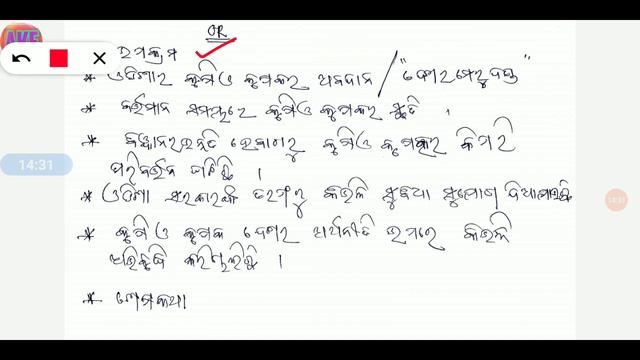 OR
AKE
ଉପକ୍ରମ
* ଓଡିଶାର କୃଷି ଓ କୃଷକର ଅବଦାନ / "ଦେଶର ମେରୁଦଣ୍ଡ"
* ବର୍ତ୍ତମାନ ସମୟରେ କୃଷି ଓ କୃଷକର ସ୍ଥିତି ।
* ବିଜ୍ଞାନର ଉନ୍ନତି ହେବା ଠାରୁ କୃଷି ଓ କୃଷକର କିପରି
ପରିବର୍ତ୍ତନ ଘଟିଛି ।
14:31
* ଓଡିଶା ସରକାରଙ୍କ ତରଫରୁ କିଭଳି ସୁବିଧା ସୁଯୋଗ ଦିଆଯାଉଛି
14:31
* କୃଷି ଓ କୃଷକ ଦେଶର ଅର୍ଥନୀତି ଉପରେ କିଭଳି
ଅଭିବୃଦ୍ଧି କରିଥିଲି ।
* ଶେଷକଥା